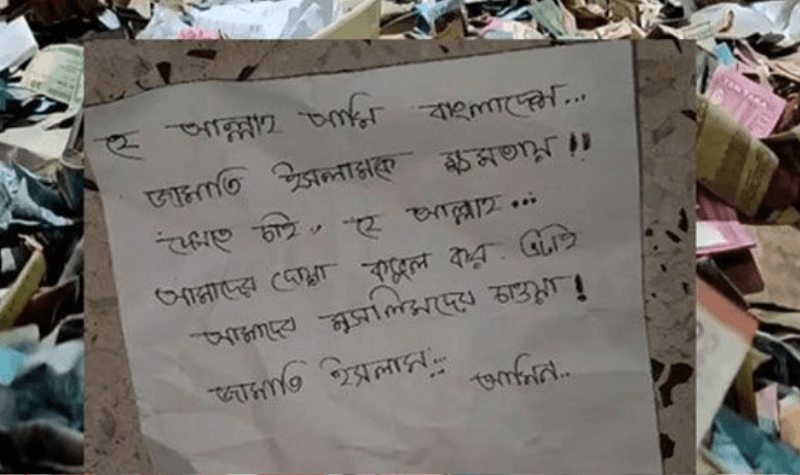 হে আল্লাহ আমি বাংলাদেশ...
জামাতি ইসলামকে ক্ষমতায় !!
দেখতে চাই,, হে আল্লাহ...
আমাদের দোয়া কবুল কর এটাই
আমাদের মুসলিমদের চাওয়া!
জামাতি ইসলাম... আমিন..